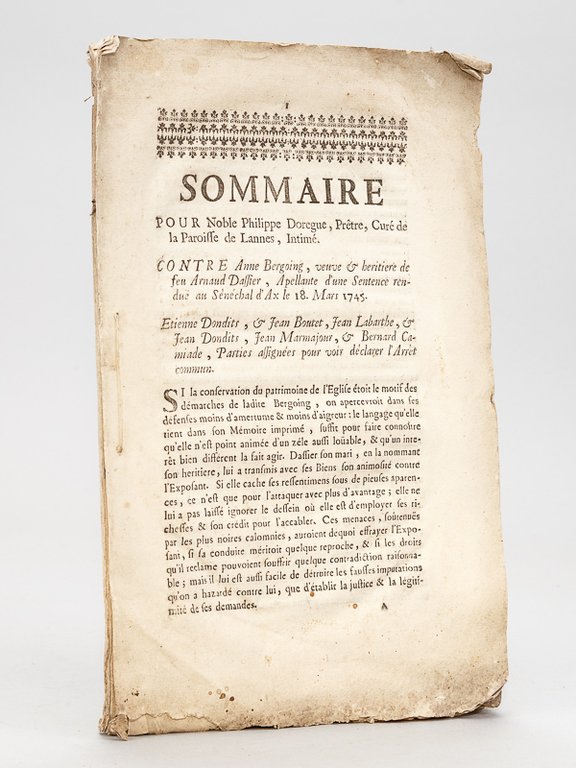 1
SOMMAIRE
POUR Noble Philippe Doregue, Prêtre, Curé de
la Paroisse de Lannes, Intimé.
CONTRE Anne Bergoing, veuve & heritiere de
feu Arnaud Dassier, Apellante d'une Sentence ren-
duë au Sénéchal d'Ax le 18. Mars 1745.
Etienne Dondits, & Jean Boutet, Jean Labarthe, &
Jean Dondits, Jean Marmajour, & Bernard Ca-
miade, Parties assignées pour voir déclarer l'Arrêt
commun.
SI la conservation du patrimoine de l'Eglise étoit le motif des
démarches de ladite Bergoing, on apercevroit dans ses
défenses moins d'amertume & moins d'aigreur: le langage qu'elle
tient dans son Mémoire imprimé, suffit pour faire connoître
qu'elle n'est point animée d'un zéle aussi loüable, & qu'un inte-
rêt bien différent la fait agir. Dassier son mari, en la nommant
son heritiere, lui a transmis avec ses Biens son animosité contre
l'Exposant. Si elle cache ses ressentimens sous de pieuses aparen-
ces, ce n'est que pour l'attaquer avec plus d'avantage; elle ne
lui a pas laissé ignorer le dessein où elle est d'employer ses ri-
chesses & son crédit pour l'accabler. Ces menaces, soûtenuës
par les plus noires calomnies, auroient dequoi effrayer l'Expo-
sant, si sa conduite méritoit quelque reproche, & si les droits
qu'il reclame pouvoient souffrir quelque contradiction raisonna-
ble; mais il lui est aussi facile de détruire les fausses imputations
qu'on a hazardé contre lui, que d'établir la justice & la légiti-
mité de ses demandes.
A